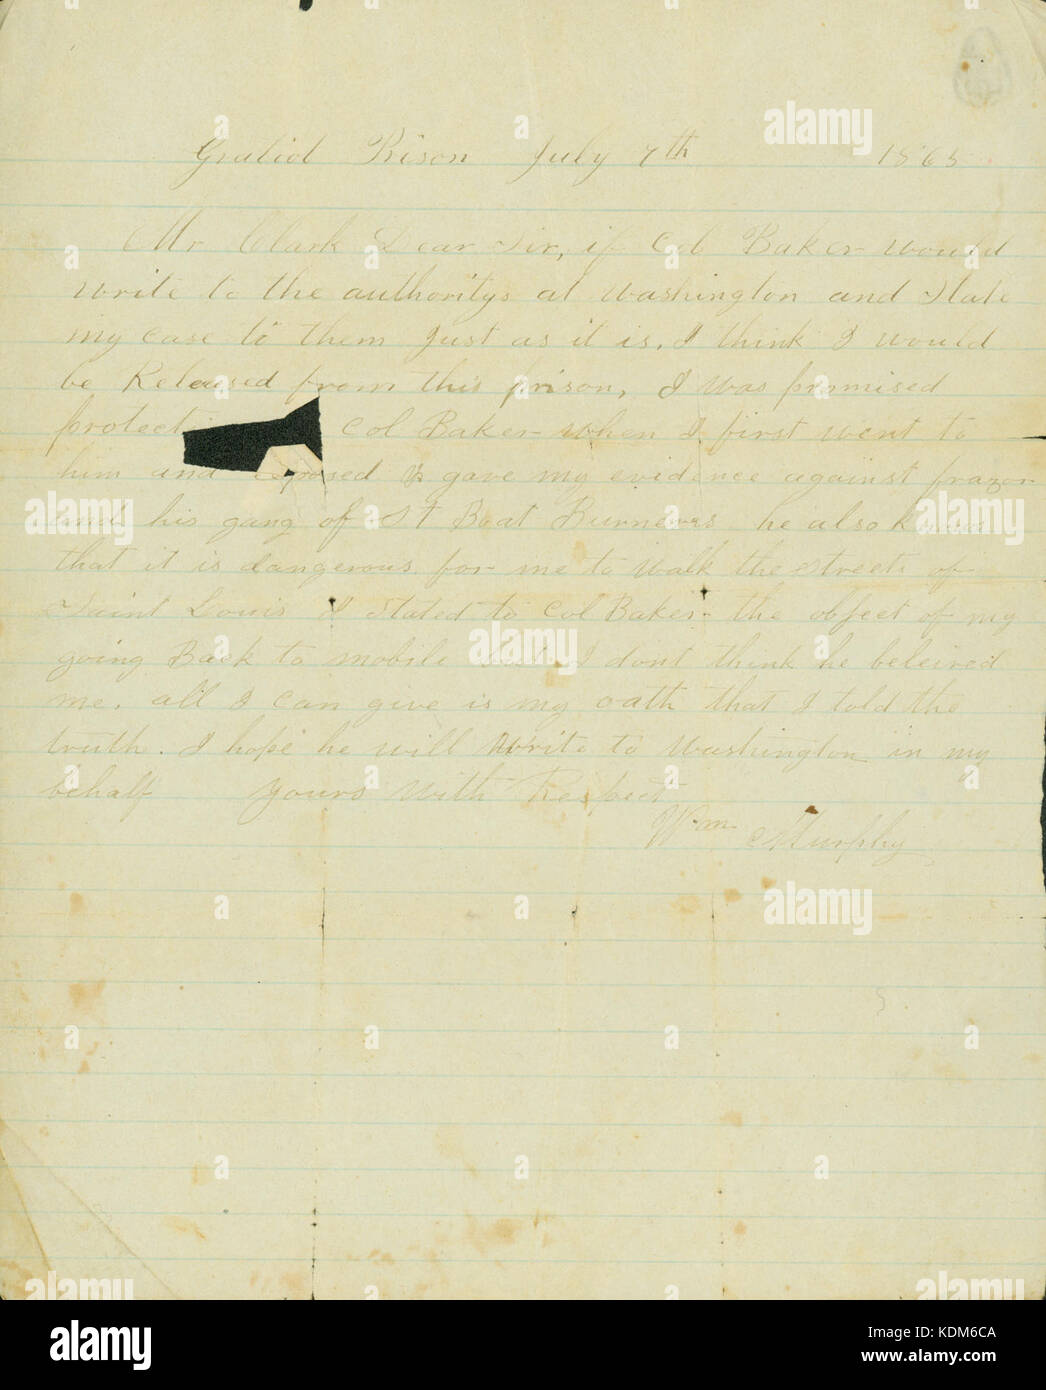 Gratiot Prison July 7th 1865
Mr Clark Dear Sir, if Col Baker would
write to the authoritys at Washington and State
my case to them Just as it is. I think I would
be Released from this prison, I was promised
protecti Col Baker when I first went to
him and exposed & gave my evidence against frazor
and his gang of St Boat Burners he also knows
that it is dangerous for me to walk the streets of
Saint Louis I stated to Col Baker the object of my
going Back to mobile but I dont think he beleived
me. all I can give is my oath that I told the
truth. I hope he will write to Washington in my
behalf yours with Respect
Wm Murphy
alamy
Image ID: KDM6CA
www.alamy.com